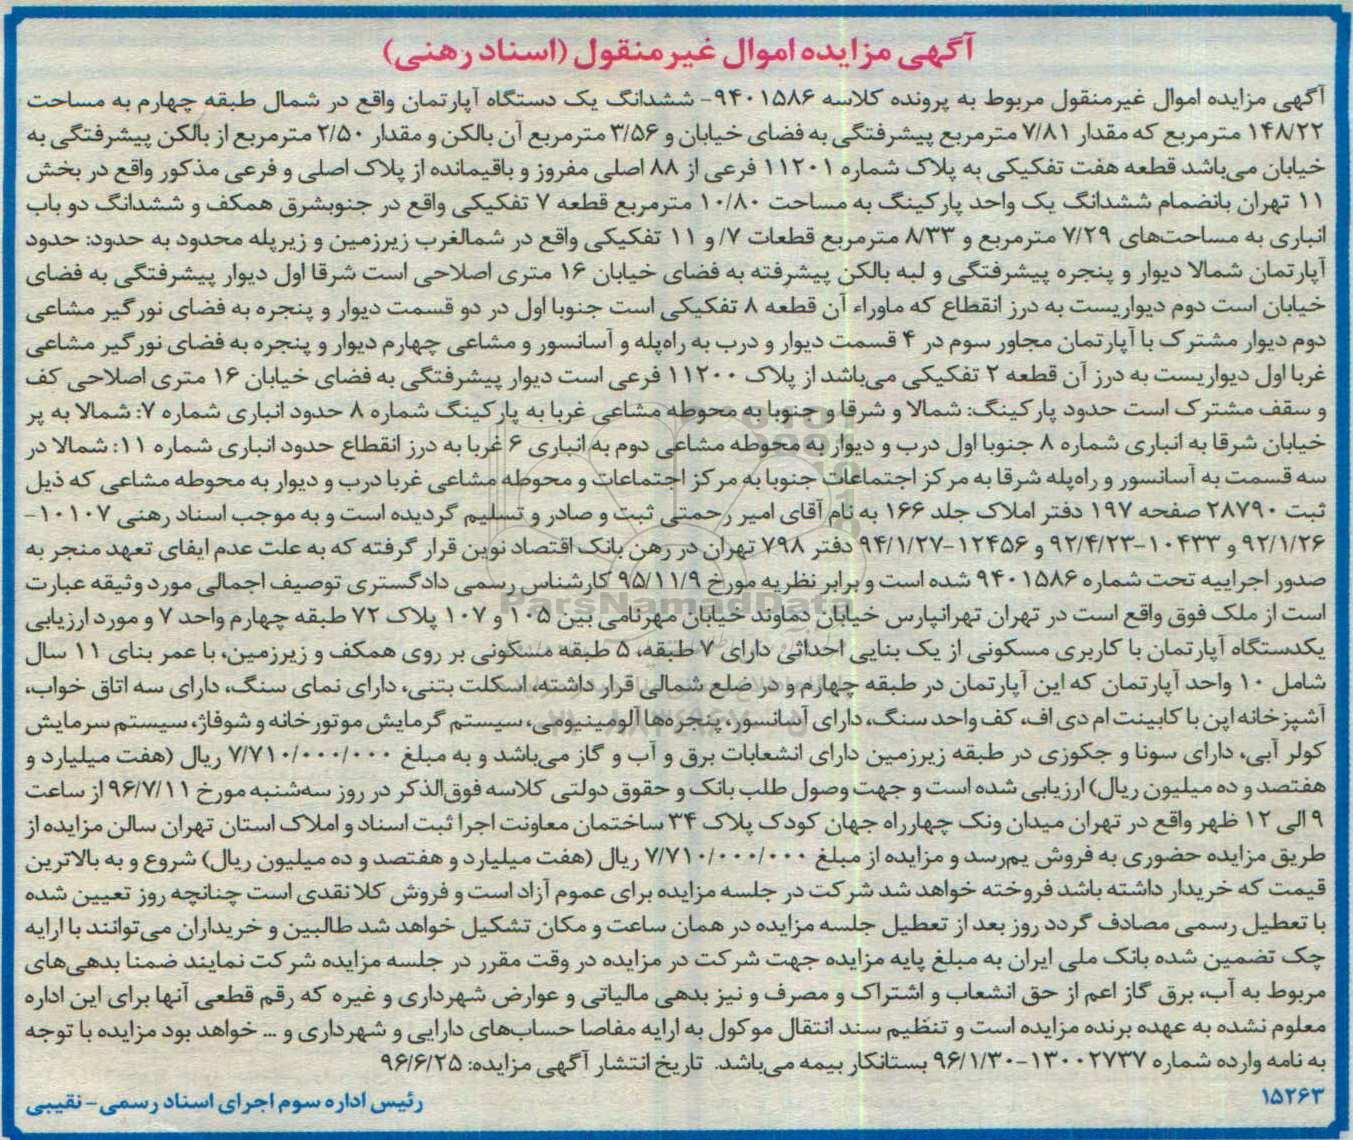 آگهی مزایده اموال غیرمنقول (اسناد رهنی)
آگهی مزایده اموال غیرمنقول مربوط به پرونده کلاسه ۹۴۰۱۵۸۶- ششدانگ یک دستگاه آپارتمان واقع در شمال طبقه چهارم به مساحت
۱۴۸/۲۲ مترمربع که مقدار ۷/۸۱ مترمربع پیشرفتگی به فضای خیابان و ۳/۵۶ مترمربع آن بالکن و مقدار ۲/۵۰ مترمربع از بالکن پیشرفتگی به
خیابان می‌باشد قطعه هفت تفکیکی به پلاک شماره ۱۱۲۰۱ فرعی از ۸۸ اصلی مفروز و باقیمانده از پلاک اصلی و فرعی مذکور واقع در بخش
۱۱ تهران بانضمام ششدانگ یک واحد پارکینگ به مساحت ۱۰/۸۰ مترمربع قطعه ۷ تفکیکی واقع در جنوبشرق همکف و ششدانگ دو باب
انباری به مساحت‌های ۷/۲۹ مترمربع و ۸/۳۳ مترمربع قطعات ۷/ و ۱۱ تفکیکی واقع در شمالغرب زیرزمین و زیرپله محدود به حدود: حدود
آپارتمان شمالا دیوار و پنجره پیشرفتگی و لبه بالکن پیشرفته به فضای خیابان ۱۶ متری اصلاحی است شرقا اول دیوار پیشرفتگی به فضای
خیابان است دوم دیواریست به درز انقطاع که ماوراء آن قطعه ۸ تفکیکی است جنوبا اول در دو قسمت دیوار و پنجره به فضای نورگیر مشاعی
دوم دیوار مشترک با آپارتمان مجاور سوم در ۴ قسمت دیوار و درب به راه‌پله و آسانسور و مشاعی چهارم دیوار و پنجره به فضای نورگیر مشاعی
غربا اول دیواریست به درز آن قطعه ۲ تفکیکی می‌باشد از پلاک ۱۱۲۰۰ فرعی است دیوار پیشرفتگی به فضای خیابان ۱۶ متری اصلاحی کف
و سقف مشترک است حدود پارکینگ: شمالا و شرقا و جنوبا به محوطه مشاعی غربا به پارکینگ شماره ۸ حدود انباری شماره ۷: شمالا به پر
خیابان شرقا به انباری شماره ۸ جنوبا اول درب و دیوار به محوطه مشاعی دوم به انباری ۶ غربا به درز انقطاع حدود انباری شماره ۱۱: شمالا در
سه قسمت به آسانسور و راه‌پله شرقا به مرکز اجتماعات جنوبا به مرکز اجتماعات و محوطه مشاعی غربا درب و دیوار به محوطه مشاعی که ذیل
ثبت ۲۸۷۹۰ صفحه ۱۹۷ دفتر املاک جلد ۱۶۶ به نام آقای امیر رحمتی ثبت و صادر و تسلیم گردیده است و به موجب اسناد رهنی ۱۰۱۰۷-
۹۲/۱/۲۶ و ۱۰۴۳۳-۹۲/۴/۲۳ و ۱۲۴۵۶-۹۴/۱/۲۷ دفتر ۷۹۸ تهران در رهن بانک اقتصاد نوین قرار گرفته که به علت عدم ایفای تعهد منجر به
صدور اجراییه تحت شماره ۹۴۰۱۵۸۶ شده است و برابر نظریه مورخ ۹۵/۱۱/۹ کارشناس رسمی دادگستری توصیف اجمالی مورد وثیقه عبارت
است از ملک فوق واقع است در تهران تهرانپارس خیابان دماوند خیابان مهرنامی بین ۱۰۵ و ۱۰۷ پلاک ۷۲ طبقه چهارم واحد ۷ و مورد ارزیابی
یکدستگاه آپارتمان با کاربری مسکونی از یک بنایی احداثی دارای ۷ طبقه، ۵ طبقه مسکونی بر روی همکف و زیرزمین، با عمر بنای ۱۱ سال
شامل ۱۰ واحد آپارتمان که این آپارتمان در طبقه چهارم و در ضلع شمالی قرار داشته، اسکلت بتنی، دارای نمای سنگ، دارای سه اتاق خواب،
آشپزخانه اپن با کابینت ام دی اف، کف واحد سنگ، دارای آسانسور، پنجره‌ها آلومینیومی، سیستم گرمایش موتورخانه و شوفاژ، سیستم سرمایش
کولر آبی، دارای سونا و جکوزی در طبقه زیرزمین دارای انشعابات برق و آب و گاز می‌باشد و به مبلغ ۷/۷۱۰/۰۰۰/۰۰۰ ریال (هفت میلیارد و
هفتصد و ده میلیون ریال) ارزیابی شده است و جهت وصول طلب بانک و حقوق دولتی کلاسه فوق‌الذکر در روز سه‌شنبه مورخ ۹۶/۷/۱۱ از ساعت
۹ الی ۱۲ ظهر واقع در تهران میدان ونک چهارراه جهان کودک پلاک ۳۴ ساختمان معاونت اجرا ثبت اسناد و املاک استان تهران سالن مزایده از
طریق مزایده حضوری به فروش یم‌رسد و مزایده از مبلغ ۷/۷۱۰/۰۰۰/۰۰۰ ریال (هفت میلیارد و هفتصد و ده میلیون ریال) شروع و به بالاترین
قیمت که خریدار داشته باشد فروخته خواهد شد شرکت در جلسه مزایده برای عموم آزاد است و فروش کلا نقدی است چنانچه روز تعیین شده
با تعطیل رسمی مصادف گردد روز بعد از تعطیل جلسه مزایده در همان ساعت و مکان تشکیل خواهد شد طالبین و خریداران می‌توانند با ارایه
چک تضمین شده بانک ملی ایران به مبلغ پایه مزایده جهت شرکت در مزایده در وقت مقرر در جلسه مزایده شرکت نمایند ضمنا بدهی‌های
مربوط به آب، برق گاز اعم از حق انشعاب و اشتراک و مصرف و نیز بدهی مالیاتی و عوارض شهرداری و غیره که رقم قطعی آنها برای این اداره
معلوم نشده به عهده برنده مزایده است و تنظیم سند انتقال موکول به ارایه مفاصا حساب‌های دارایی و شهرداری و ... خواهد بود مزایده با توجه
به نامه وارده شماره ۱۳۰۰۲۷۳۷-۹۶/۱/۳۰ بستانکار بیمه می‌باشد. تاریخ انتشار آگهی مزایده: ۹۶/۶/۲۵
۱۵۲۶۳ رئیس اداره سوم اجرای اسناد رسمی- نقیبی
ParsNamadData